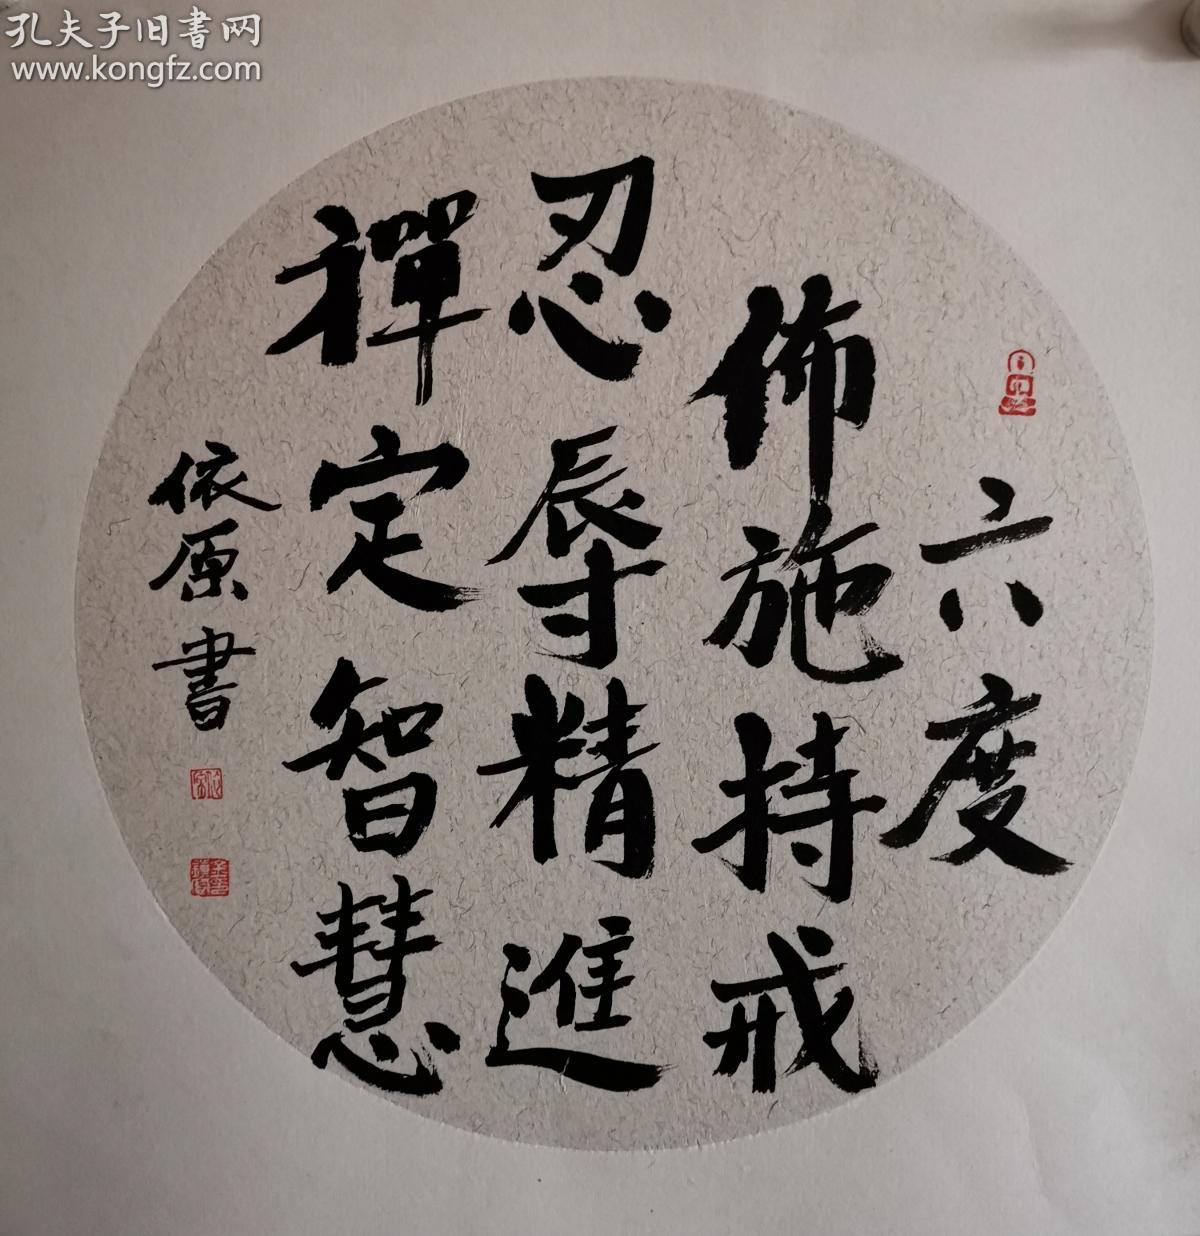 孔夫子旧書网
www.kongfz.com
六度
佈施持戒
忍辱精進
禪定智慧
依原書